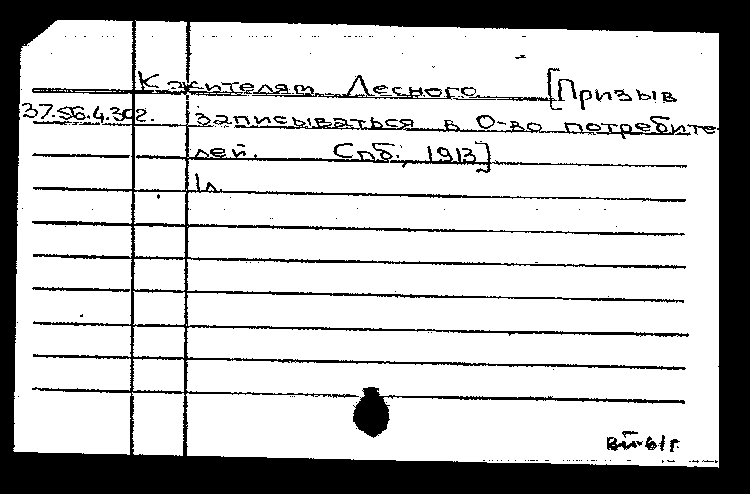 К жителям Лесного [Призыв
37.56.4.302. записываться в О-во потребите-
лей. Спб., 1913]
1л.